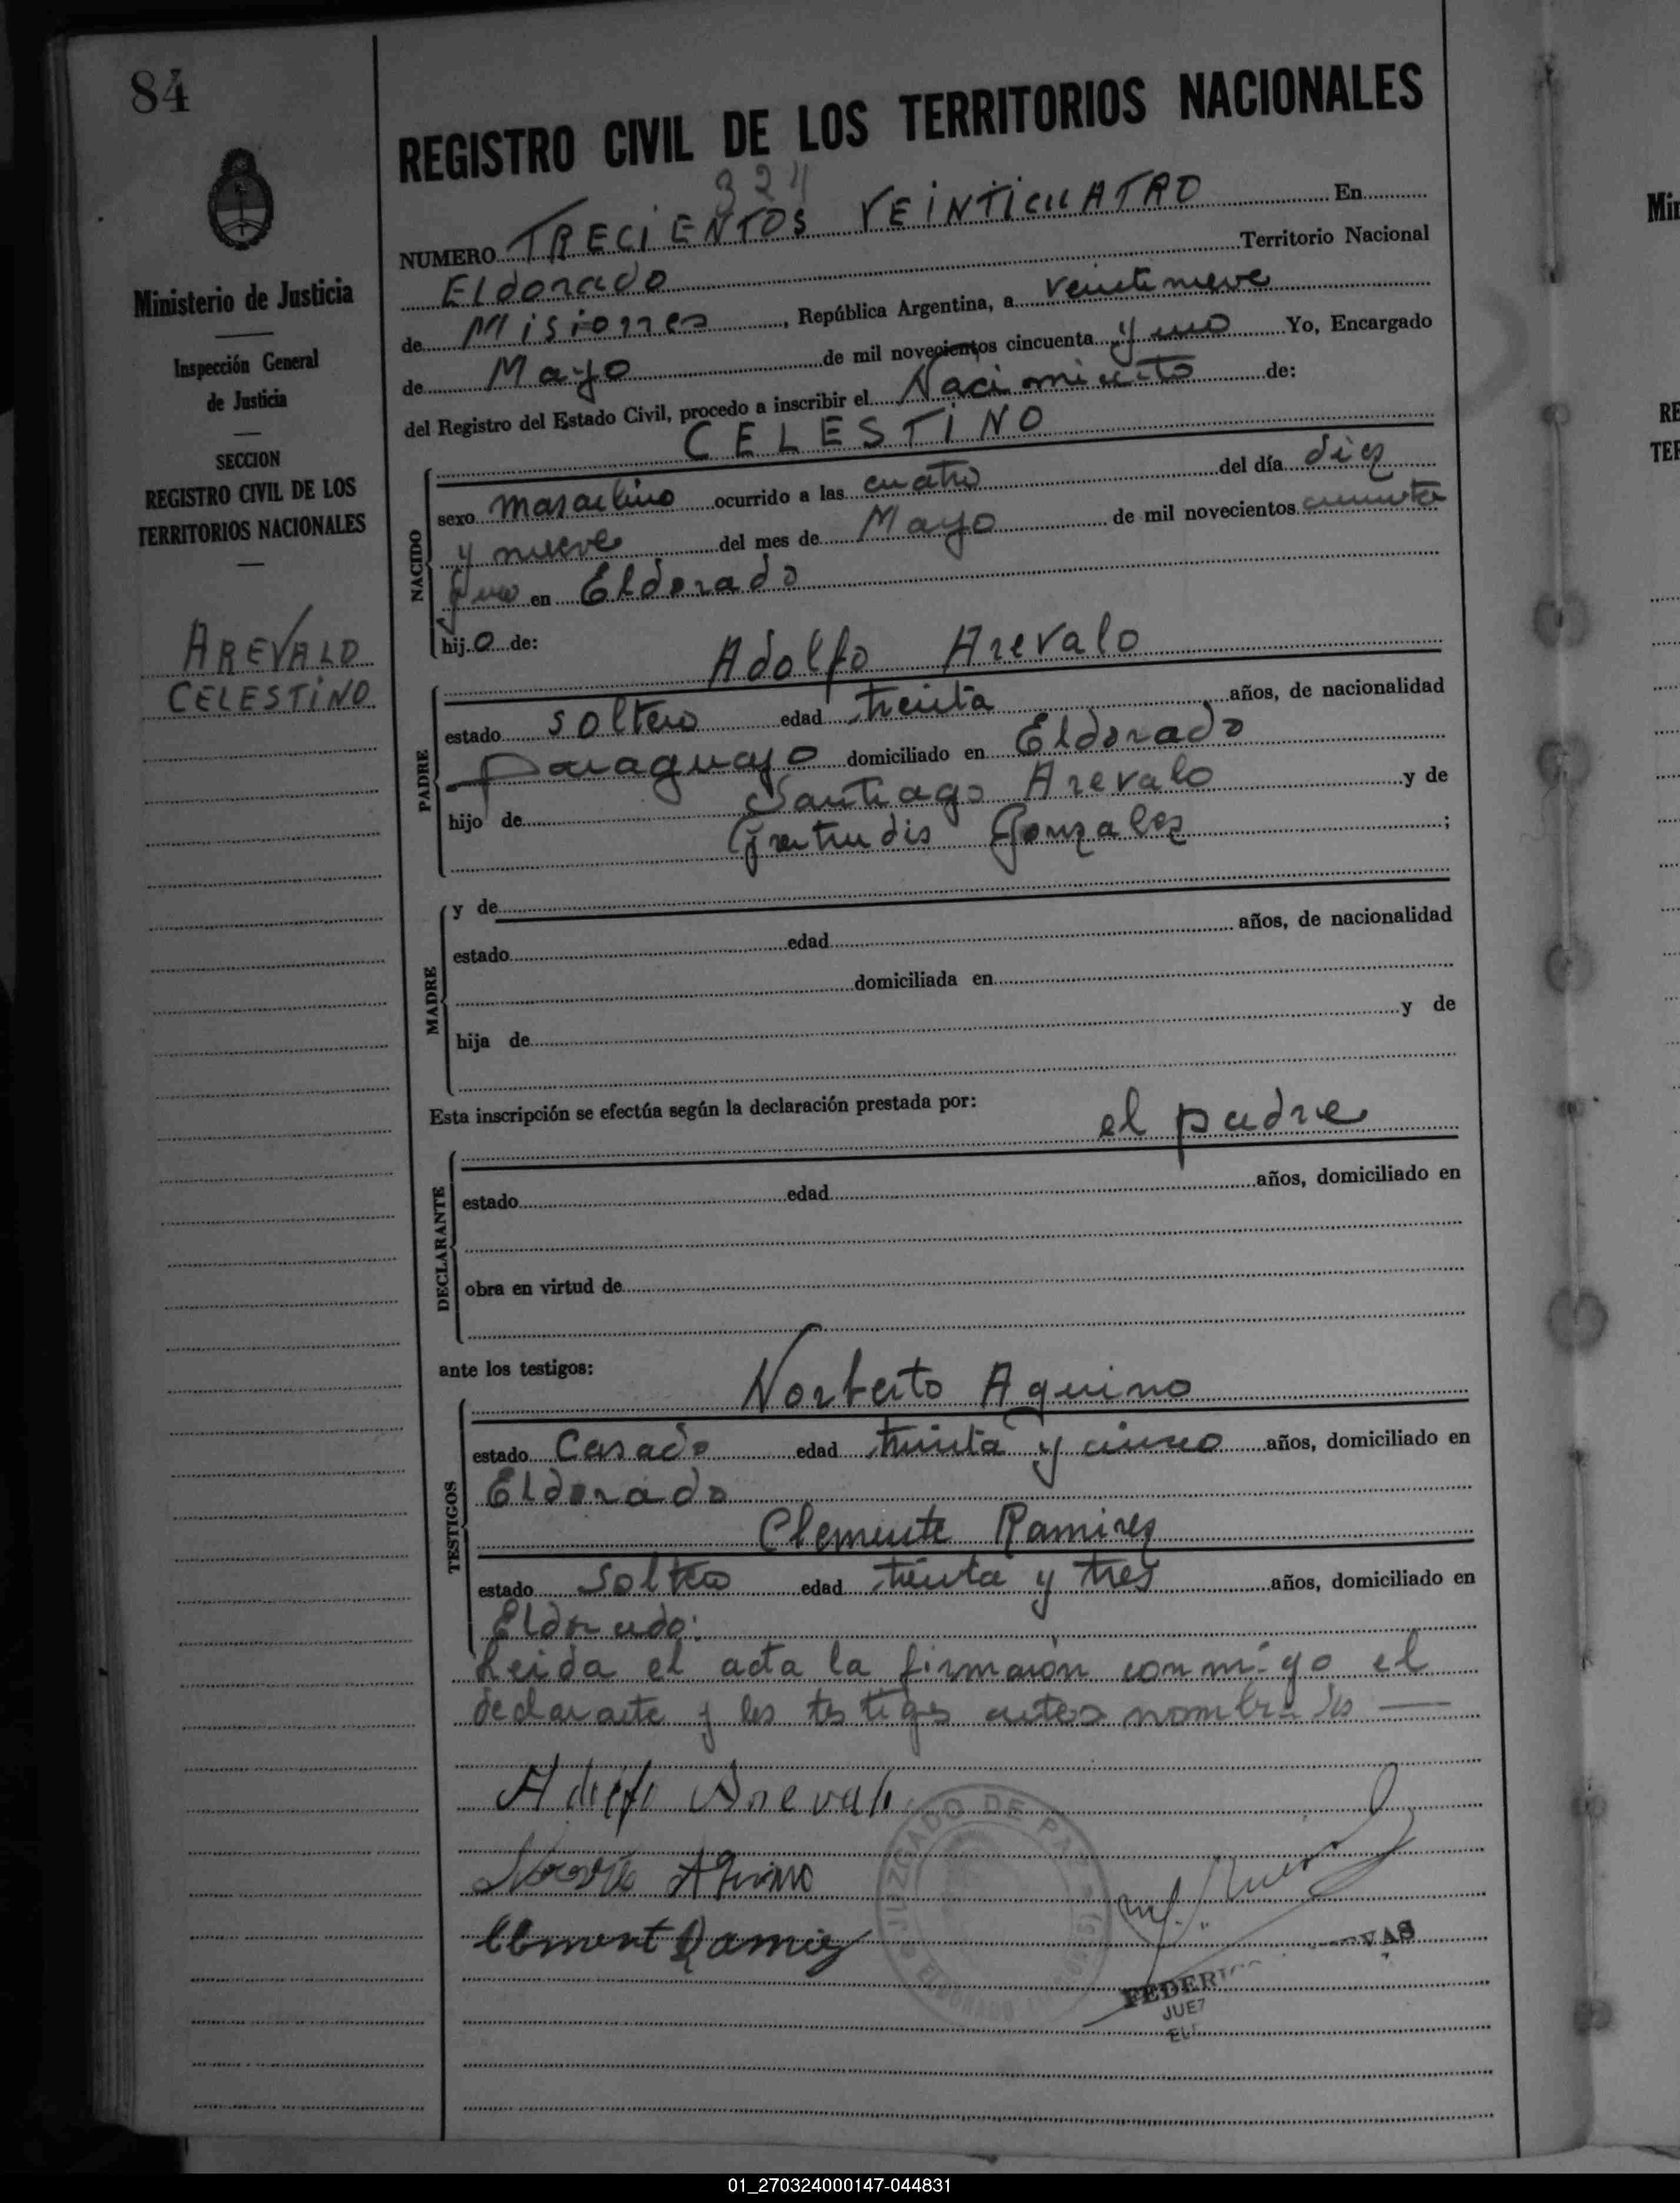 84
Ministerio de Justicia
Inspección General
de Justicia
SECCION
REGISTRO CIVIL DE LOS
TERRITORIOS NACIONALES
AREVALO
CELESTINO
REGISTRO CIVIL DE LOS TERRITORIOS NACIONALES
324
NUMERO TRECIENTOS VEINTICUATRO En
Eldorado Territorio Nacional
de Misiones, República Argentina, a veintinueve
de Mayo de mil novecientos cincuenta y uno Yo, Encargado
del Registro del Estado Civil, procedo a inscribir el Nacimiento de:
CELESTINO
NACIDO
sexo masculino ocurrido a las cuatro del día diez
y nueve del mes de Mayo de mil novecientos cincuenta
y uno en Eldorado
hijo de:
Adolfo Arevalo
PADRE
estado soltero edad treinta años, de nacionalidad
paraguayo domiciliado en Eldorado
hijo de Santiago Arevalo y de
Gertrudis Gonzalez ;
MADRE
y de
estado edad años, de nacionalidad
domiciliada en
hija de y de
Esta inscripción se efectúa según la declaración prestada por:
el padre
DECLARANTE
estado edad años, domiciliado en
obra en virtud de
ante los testigos:
Norberto Aquino
TESTIGOS
estado Casado edad treinta y cinco años, domiciliado en
Eldorado
Clemente Ramirez
estado Soltero edad treinta y tres años, domiciliado en
Eldorado:
Leida el acta la firmaron conmigo el
declarante y los testigos antes nombrados —
Adolfo Arevalo
Aquino
Clement Ramirez
JUZGADO DE PAZ
ELDORADO
VAS
JUEZ
01_270324000147-044831
Min
RE
TER